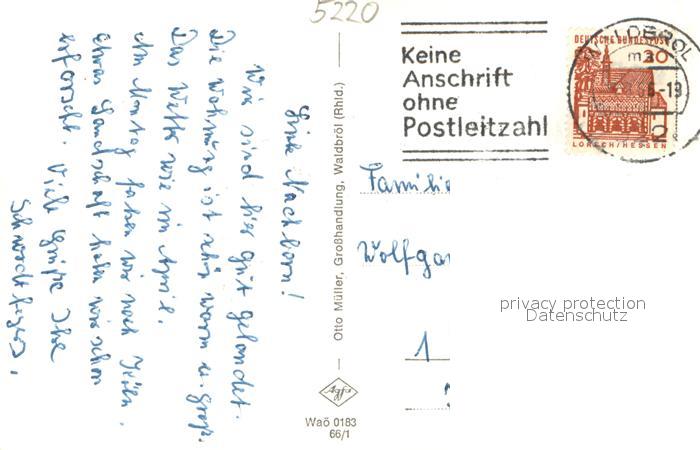 5220
Liebe Nachbarn!
Wir sind hier gut gelandet.
Die Wohnung ist schön warm u. groß.
Das Wetter wie im April.
Am Montag fahren wir nach Trier.
Etwas Landschaft haben wir schon
erforscht. Viele Grüße Ihre
Otto Müller, Großhandlung, Waldbröl (Rhld.)
Agfa
Waö 0183
66/1
Keine
Anschrift
ohne
Postleitzahl
DEUTSCHE BUNDESPOST
20
LORSCH/HESSEN
Familie
Wolfga
1
privacy protection
Datenschutz